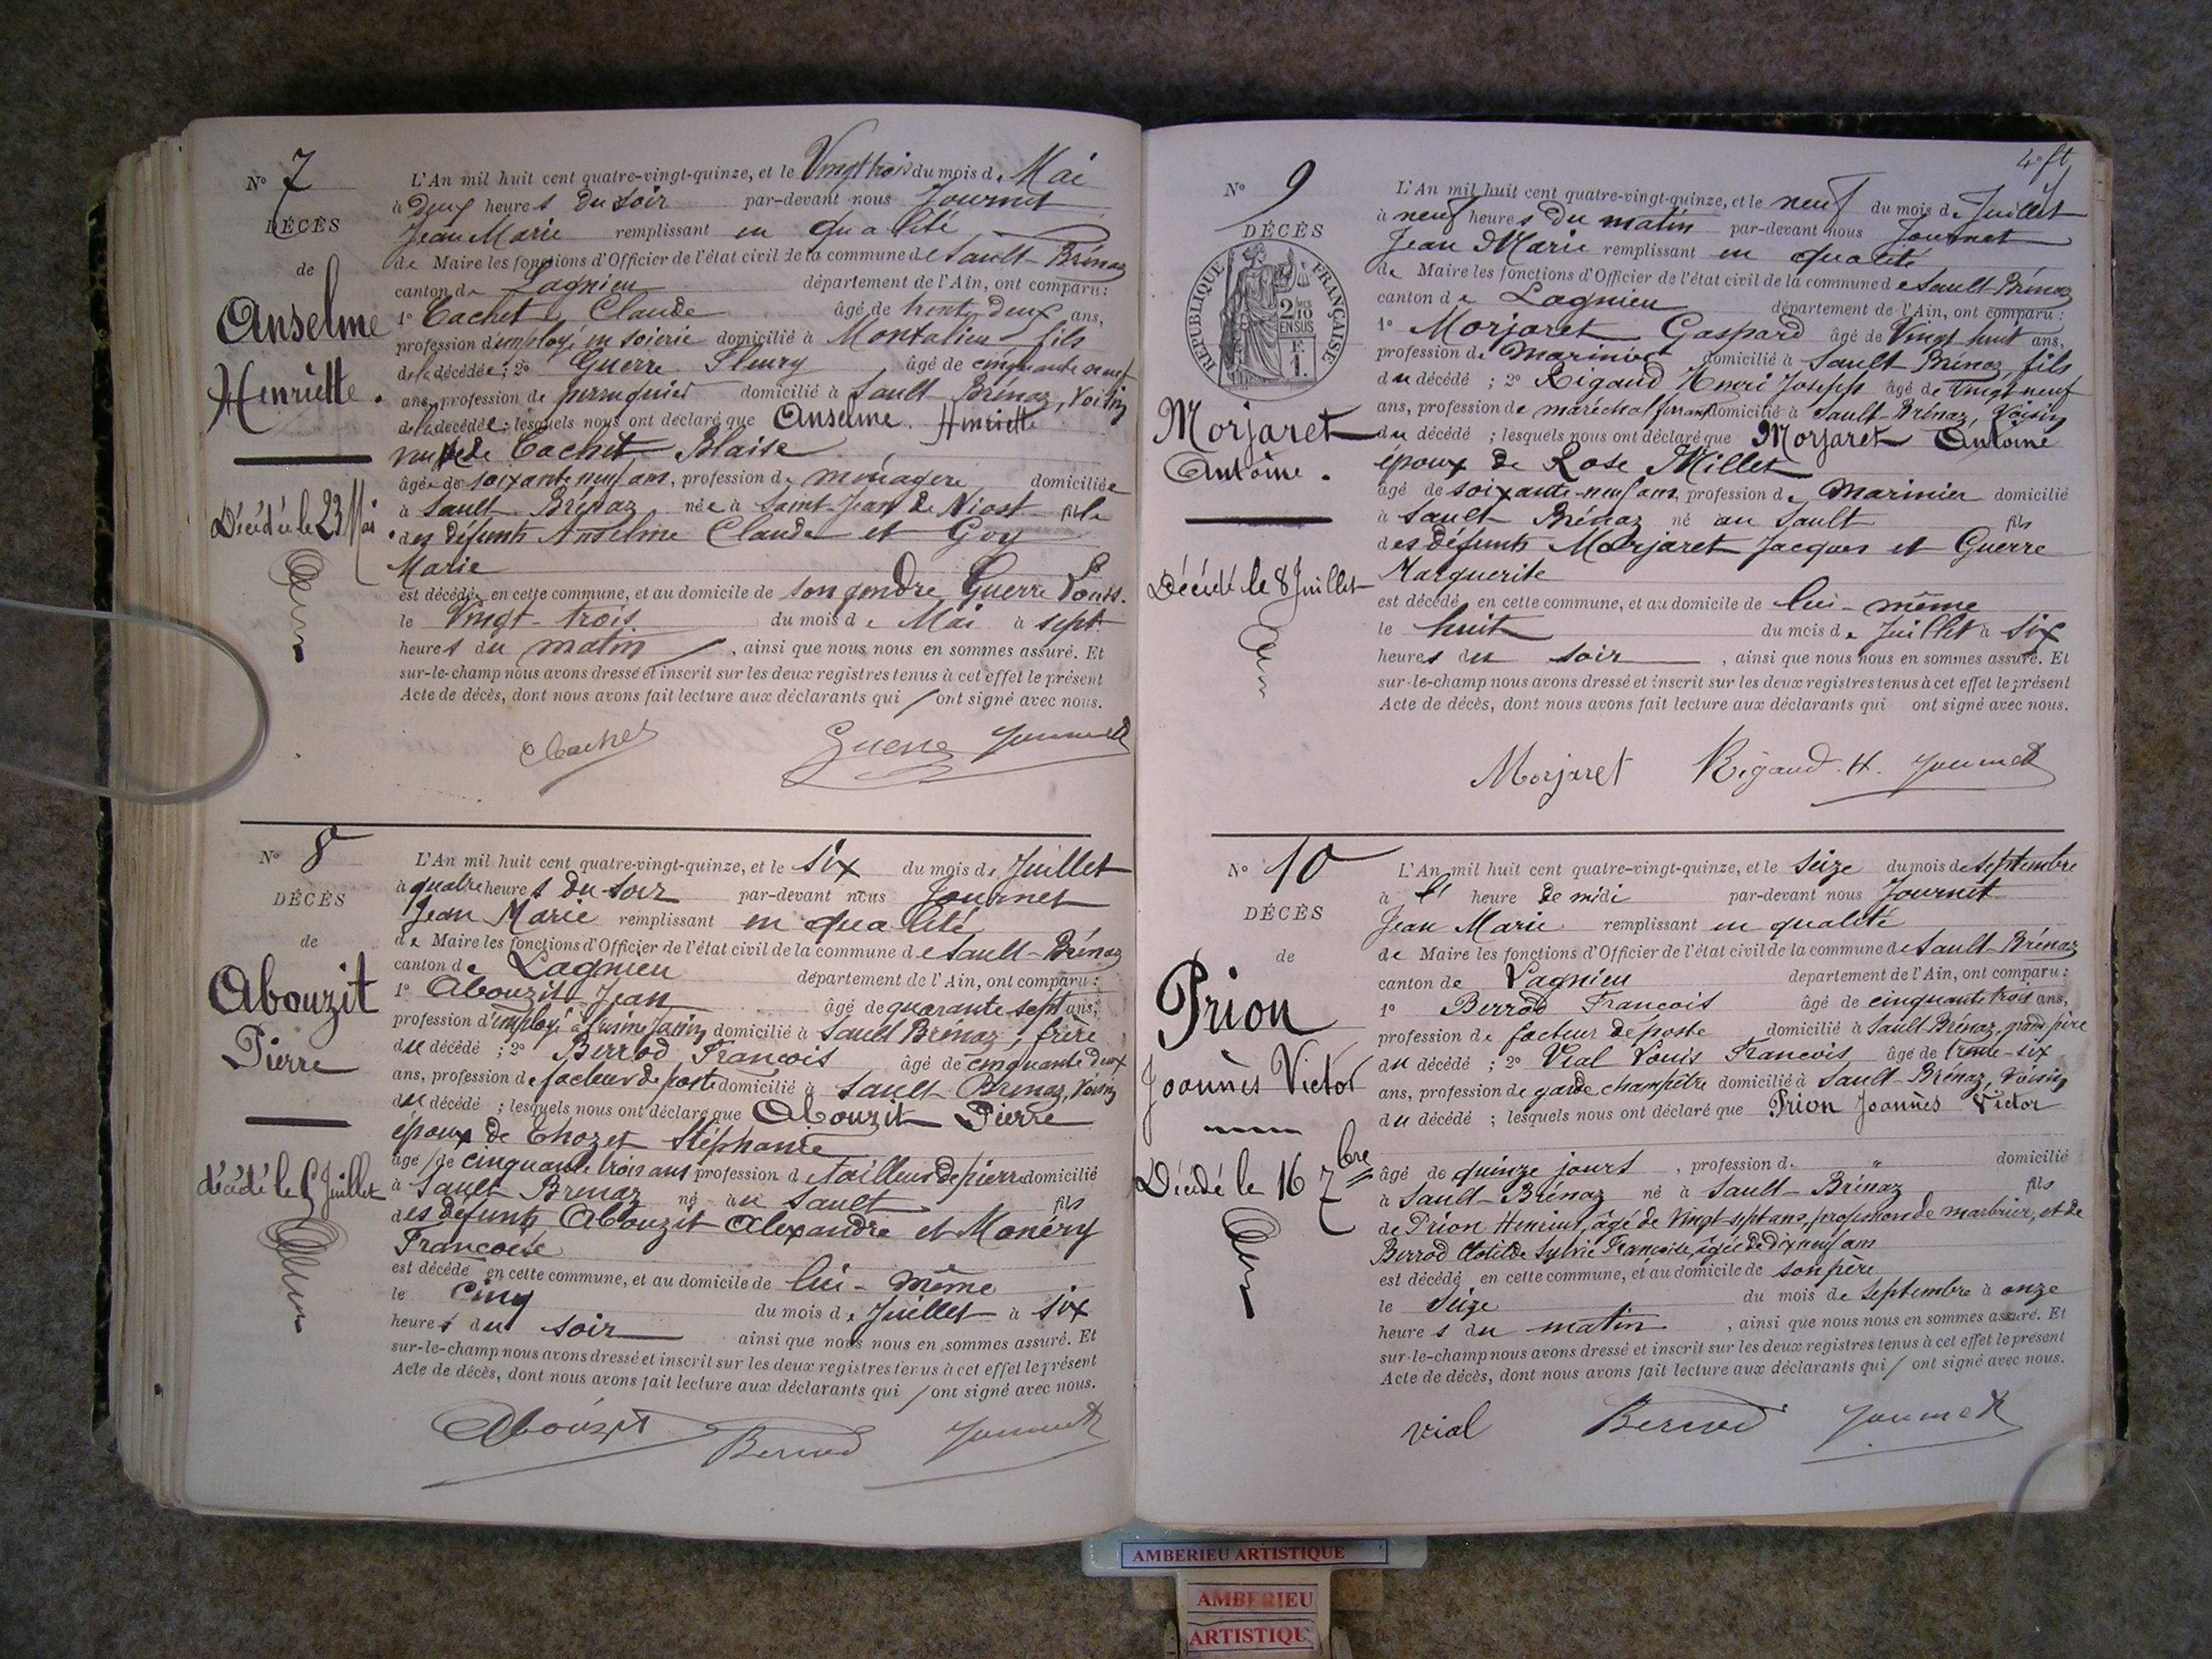 N° 7
DÉCÈS
de
Anselme
Henriette.
Décédée le 23 Mai
L'An mil huit cent quatre-vingt-quinze, et le Vingt trois du mois de Mai
à deux heures du soir par-devant nous Journet
Jean Marie remplissant en qualité
de Maire les fonctions d'Officier de l'état civil de la commune de Sault-Brénaz
canton de Lagnieu département de l'Ain, ont comparu :
1° Cachet Claude âgé de trente deux ans,
profession d'employé en soierie domicilié à Montalieu fils
de la décédée ; 2° Guerre Fleury âgé de cinquante neuf
ans, profession de perruquier domicilié à Sault Brénaz, Voisin
de la décédée ; lesquels nous ont déclaré que Anselme Henriette
veuve de Cachet Blaise
âgée de soixante neuf ans, profession de ménagère domiciliée
à Sault Brénaz née à Saint-Jean de Niost fille
des défunts Anselme Claude et Goy
Marie
est décédée en cette commune, et au domicile de son gendre Guerre Louis.
le Vingt-trois du mois de Mai à sept
heures du matin, ainsi que nous nous en sommes assuré. Et
sur-le-champ nous avons dressé et inscrit sur les deux registres tenus à cet effet le présent
Acte de décès, dont nous avons fait lecture aux déclarants qui ont signé avec nous.
Cachet Guerre Journet
N° 8
DÉCÈS
de
Abouzit
Pierre
décédé le 5 Juillet
L'An mil huit cent quatre-vingt-quinze, et le six du mois de Juillet
à quatre heures du soir par-devant nous Journet
Jean Marie remplissant en qualité
de Maire les fonctions d'Officier de l'état civil de la commune de Sault-Brénaz
canton de Lagnieu département de l'Ain, ont comparu :
1° Abouzit Jean âgé de quarante sept ans,
profession d'employé à l'usine domicilié à Sault Brénaz, frère
du décédé ; 2° Berrod François âgé de cinquante deux
ans, profession de facteur de poste domicilié à Sault Brénaz, Voisin
du décédé ; lesquels nous ont déclaré que Abouzit Pierre
époux de Chozet Stéphanie
âgé de cinquante trois ans profession de tailleur de pierre domicilié
à Sault Brénaz né au Sault fils
des défunts Abouzit Alexandre et Monéry
Françoise
est décédé en cette commune, et au domicile de lui-même
le cinq du mois de Juillet à six
heures du soir ainsi que nous nous en sommes assuré. Et
sur-le-champ nous avons dressé et inscrit sur les deux registres tenus à cet effet le présent
Acte de décès, dont nous avons fait lecture aux déclarants qui ont signé avec nous.
Abouzit Berrod Journet
4e ft
N° 9
DÉCÈS
RÉPUBLIQUE FRANÇAISE
2 DES 10 EN SUS
F. 1.
Morjaret
Antoine.
Décédé le 8 Juillet
L'An mil huit cent quatre-vingt-quinze, et le neuf du mois de Juillet
à neuf heures du matin par-devant nous Journet
Jean Marie remplissant en qualité
de Maire les fonctions d'Officier de l'état civil de la commune de Sault Brénaz
canton de Lagnieu département de l'Ain, ont comparu :
1° Morjaret Gaspard âgé de Vingt huit ans,
profession de marinier domicilié à Sault Brénaz, fils
du décédé ; 2° Rigaud Henri Joseph âgé de Vingt neuf
ans, profession de maréchal ferrant domicilié à Sault-Brénaz, Voisin
du décédé ; lesquels nous ont déclaré que Morjaret Antoine
époux de Rose Millet
âgé de soixante-neuf ans, profession de marinier domicilié
à Sault Brénaz né au Sault fils
des défunts Morjaret Jacques et Guerre
Marguerite
est décédé en cette commune, et au domicile de lui-même
le huit du mois de Juillet à six
heures du soir, ainsi que nous nous en sommes assuré. Et
sur-le-champ nous avons dressé et inscrit sur les deux registres tenus à cet effet le présent
Acte de décès, dont nous avons fait lecture aux déclarants qui ont signé avec nous.
Morjaret Rigaud. H. Journet
N° 10
DÉCÈS
de
Prion
Joannès Victor
Décédé le 16 7bre
L'An mil huit cent quatre-vingt-quinze, et le seize du mois de septembre
à l' heure de midi par-devant nous Journet
Jean Marie remplissant en qualité
de Maire les fonctions d'Officier de l'état civil de la commune de Sault-Brénaz
canton de Lagnieu département de l'Ain, ont comparu :
1° Berrod François âgé de cinquante trois ans,
profession de facteur de poste domicilié à Sault Brénaz, grand père
du décédé ; 2° Vial Louis François âgé de trente-six
ans, profession de garde champêtre domicilié à Sault-Brénaz, Voisin
du décédé ; lesquels nous ont déclaré que Prion Joannès Victor
âgé de quinze jours, profession d. " domicilié
à Sault-Brénaz né à Sault-Brénaz fils
de Prion Henriut, âgé de Vingt-sept ans, profession de marbrier, et de
Berrod Clotilde Sylvie Françoise, âgée de dix neuf ans
est décédé en cette commune, et au domicile de son père
le Seize du mois de septembre à onze
heures du matin, ainsi que nous nous en sommes assuré. Et
sur-le-champ nous avons dressé et inscrit sur les deux registres tenus à cet effet le présent
Acte de décès, dont nous avons fait lecture aux déclarants qui ont signé avec nous.
Vial Berrod Journet
AMBERIEU ARTISTIQUE
AMBERIEU
ARTISTIQU